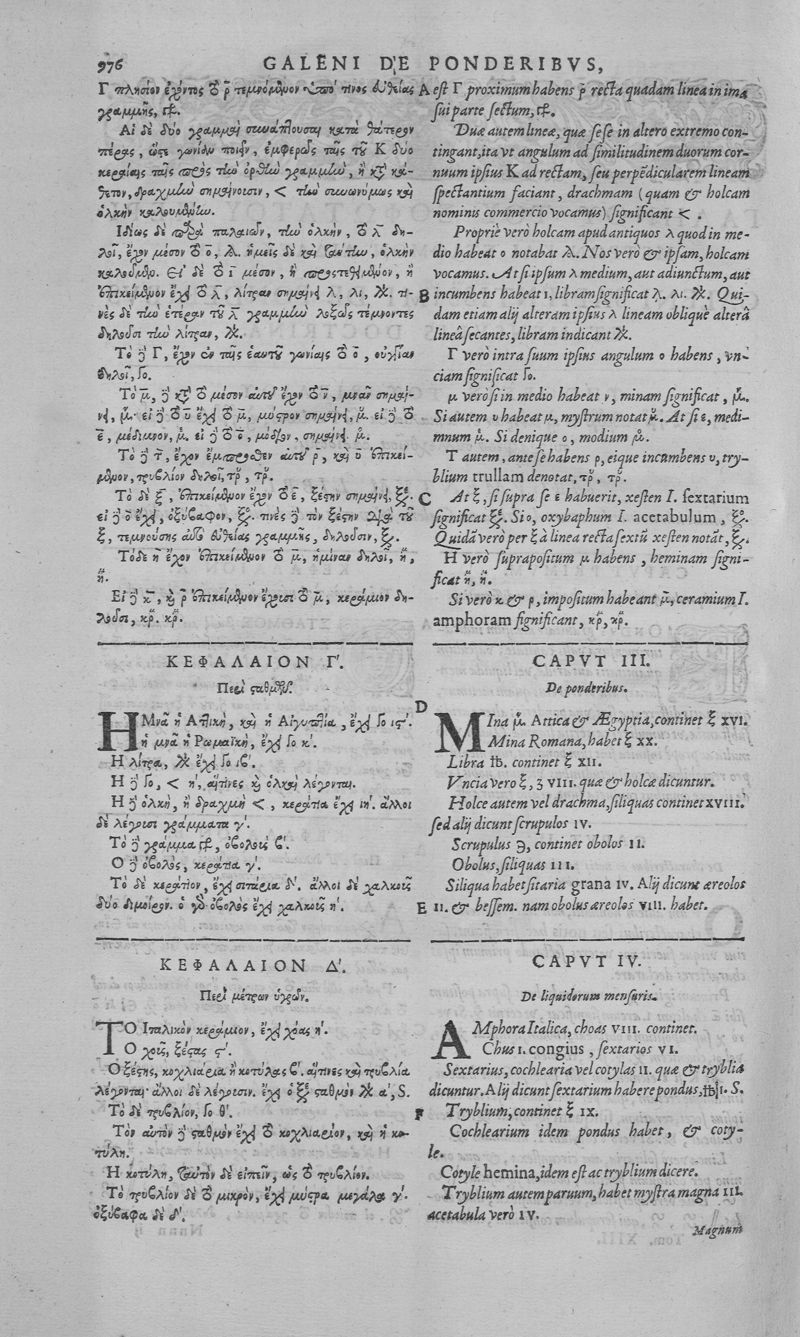 976 GALENI DE PONDERIBVS,
Γ πλησίον ἔχοντος τὸ ρ̄ τεμνόμενον ὑπό τινος εὐθείας
γραμμῆς,
Αἱ δὲ δύο γραμμαὶ συνάπτουσαι κατὰ θάτερον
πέρας, ὥστε γωνίαν ποιεῖν, ἐμφερῶς ταῖς τοῦ Κ δυο
κεραίαις ταῖς πρὸς τὴν ὀρθὴν γραμμὴν, ἢ κατὰ κά-
θετον, δραχμὴν σημαίνουσιν, < τὴν συνωνύμως καὶ
ὁλκὴν καλουμένην.
Ἰδίως δὲ παρὰ παλαιῶν, τὴν ὁλκὴν, τὸ λ̄ δη-
λοῖ, ἔχον μέσον τὸ ο̄, ἡμεῖς δὲ καὶ ταύτην, ὁλκὴν
καλοῦμεν. Εἰ δὲ τὸ ῑ μέσον, ἢ προστεθειμένον, ἢ
ἐπικείμενον ἔχει τὸ λ̄, λίτραν σημαίνει λ, λι, τι-
νὲς δὲ τὴν ἑτέραν τοῦ λ̄ γραμμὴν λοξῶς τέμνοντες
δηλοῦσι τὴν λίτραν,
Τὸ δὲ Γ, ἔχον ἐν ταῖς ἑαυτοῦ γωνίαις τὸ ο̄, οὐγγίαν
δηλοῖ, Γο.
Τὸ μ̄, δὲ κατὰ τὸ μέσον αὐτοῦ ἔχον τὸ ν̄, μνᾶν σημαί-
νει, εἰ δὲ τὸ ῡ ἔχει τὸ μ̄, μύστρον σημαίνει, εἰ δὲ τὸ
ε̄, μέδιμνον, εἰ δὲ τὸ ο̄, μόδιον, σημαίνει.
Τὸ δὲ τ̄, ἔχον ἔμπροσθεν αὐτοῦ ρ̄, καὶ ῡ ἐπικεί-
μενον, τρυβλίον δηλοῖ,
Τὸ δὲ ξ, ἐπικείμενον ἔχον τὸ ε̄, ξέστην σημαίνει,
εἰ δὲ ο̄ ἔχει, ὀξύβαφον, τινὲς δὲ τὸν ξέστην διὰ τοῦ
ξ, τεμνούσης αὐτὸ εὐθείας γραμμῆς, δηλοῦσιν,
Τὸ δὲ η̄ ἔχον ἐπικείμενον τὸ μ̄, ἡμίναν δηλοῖ,
Εἰ δὲ κ̄, καὶ ρ̄ ἐπικείμενον ἔχουσι τὸ μ̄, κεράμιον δη-
λοῦσι,
ΚΕΦΑΛΑΙΟΝ Γ'.
Περὶ σταθμῶν.
Η Μνᾶ ἡ Ἀττικὴ, καὶ ἡ Αἰγυπτία, ἔχει Γο ις'.
ἡ μνᾶ ἡ Ρωμαϊκὴ, ἔχει Γο κ'.
Ἡ λίτρα, ἔχει Γο ιβ'.
Ἡ δὲ Γο, < η, αἵτινες καὶ ὁλκαὶ λέγονται.
Ἡ δὲ ὁλκὴ, ἢ δραχμὴ <, κεράτια ἔχει ιη'. ἄλλοι
δὲ λέγουσι γράμματα γ'.
Τὸ δὲ γράμμα, ὀβολοὺς β'.
Ο δὲ ὀβολὸς, κεράτια γ'.
Τὸ δὲ κεράτιον, ἔχει σιτάρια δ'. ἄλλοι δὲ χαλκοῦς
δύο διμοίρον. ὁ γὰρ ὀβολὸς ἔχει χαλκοῦς η'.
ΚΕΦΑΛΑΙΟΝ Δ'.
Περὶ μέτρων ὑγρῶν.
ΤΟ Ἰταλικὸν κεράμιον, ἔχει χόας η'.
Ο χοῦς, ξέστας ς'.
Ὁ ξέστης, κοχλιάρια ἢ κοτύλας β'. αἵτινες καὶ τρυβλία
λέγονται· ἄλλοι δὲ λέγουσιν. ἔχει ὁ ξε σταθμὸν α', S.
Τὸ δὲ τρυβλίον, Γο θ'.
Τὸν αὐτὸν δὲ σταθμὸν ἔχει τὸ κοχλιάριον, καὶ ἡ κο-
τύλη.
Ἡ κοτύλη, ταὐτὸν δὲ εἰπεῖν, ὡς τὸ τρυβλίον.
Τὸ τρυβλίον δὲ τὸ μικρὸν, ἔχει μύστρα μεγάλα γ'.
ὀξύβαφα δὲ δ'.
A est Γ proximum habens ρ̄ recta quadam linea in ima
sui parte sectum,
Duæ autem lineæ, quæ sese in altero extremo con-
tingant, ita vt angulum ad similitudinem duorum cor-
nuum ipsius K ad rectam, seu perpēdicularem lineam
spectantium faciant, drachmam (quam & holcam
nominis commercio vocamus) significant <.
Propriè verò holcam apud antiquos λ quod in me-
dio habeat o notabat. Nos verò & ipsam, holcam
vocamus. At si ipsum λ medium, aut adiunctum, aut
B incumbens habeat ι, libram significat λ. λι. Qui-
dam etiam alij alteram ipsius λ lineam obliquè alterâ
lineâ secantes, libram indicant
Γ verò intra suum ipsius angulum o habens, vn-
ciam significat Γο.
μ verò si in medio habeat ν, minam significat,
Si autem υ habeat μ, mystrum notat At si ε, medi-
mnum Si denique o, modium
T autem, ante se habens ρ, eique incumbens υ, try-
blium trullam denotat,
C At ξ, si supra se ε habuerit, xesten I. sextarium
significat Si o, oxybaphum I. acetabulum,
Quidā verò per ξ à linea recta sectū xesten notāt,
H verò suprapositum μ habens, heminam signi-
ficat
Si verò κ & ρ, impositum habeant μ̄, ceramium I.
amphoram significant,
CAPVT III.
De ponderibus.
D
MIna Attica & Ægyptia, continet ξ XVI.
Mina Romana, habet ξ XX.
Libra ℔. continet ξ XII.
Vncia vero ξ, ʒ VIII. quæ & holcæ dicuntur.
Holce autem vel drachma, siliquas continet XVIII.
sed alij dicunt scrupulos IV.
Scrupulus ℈, continet obolos II.
Obolus, siliquas III.
Siliqua habet sitaria grana IV. Alij dicunt æreolos
E II. & bessem. nam obolus æreolos VIII. habet.
CAPVT IV.
De liquidorum mensuris.
AMphora Italica, choas VIII. continet.
Chus I. congius, sextarios VI.
Sextarius, cochlearia vel cotylas II. quæ & tryblia
dicuntur. Alij dicunt sextarium habere pondus, ℔j. S.
F Tryblium, continet ξ IX.
Cochlearium idem pondus habet, & coty-
le.
Cotyle hemina, idem est ac tryblium dicere.
Tryblium autem paruum, habet mystra magna III.
acetabula verò IV.
Magnum